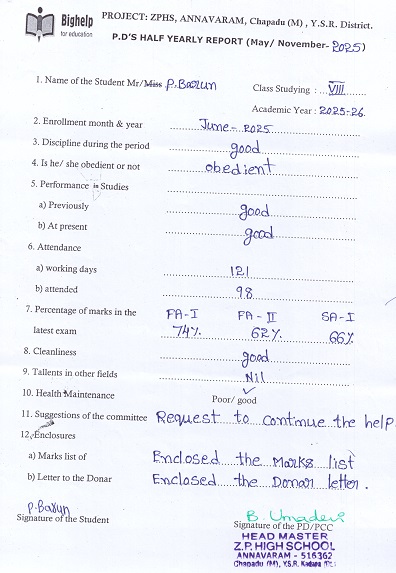 Bighelp
for education
PROJECT: ZPHS, ANNAVARAM, Chapadu (M) , Y.S.R. District.
P.D'S HALF YEARLY REPORT (May/ November- 2025)
1. Name of the Student Mr/Miss P. Barun
Class Studying : VIII
Academic Year : 2025-26.
2. Enrollment month & year June - 2025
3. Discipline during the period good
4. Is he/ she obedient or not obedient
5. Performance in Studies
a) Previously good
b) At present good
6. Attendance
a) working days 121
b) attended 98
7. Percentage of marks in the FA-I FA-II SA-I
latest exam 74% 62% 66%
8. Cleanliness good
9. Tallents in other fields Nil
10. Health Maintenance Poor/ good ✓
11. Suggestions of the committee Request to continue the help.
12. Enclosures
a) Marks list of Enclosed the Marks list
b) Letter to the Donar Enclosed the Donar letter.
P. Barun
Signature of the Student
B. Umadevi
Signature of the PD/PCC
HEAD MASTER
Z.P. HIGH SCHOOL
ANNAVARAM - 516362
Chapadu (M), Y.S.R. Kadapa (Dt.)